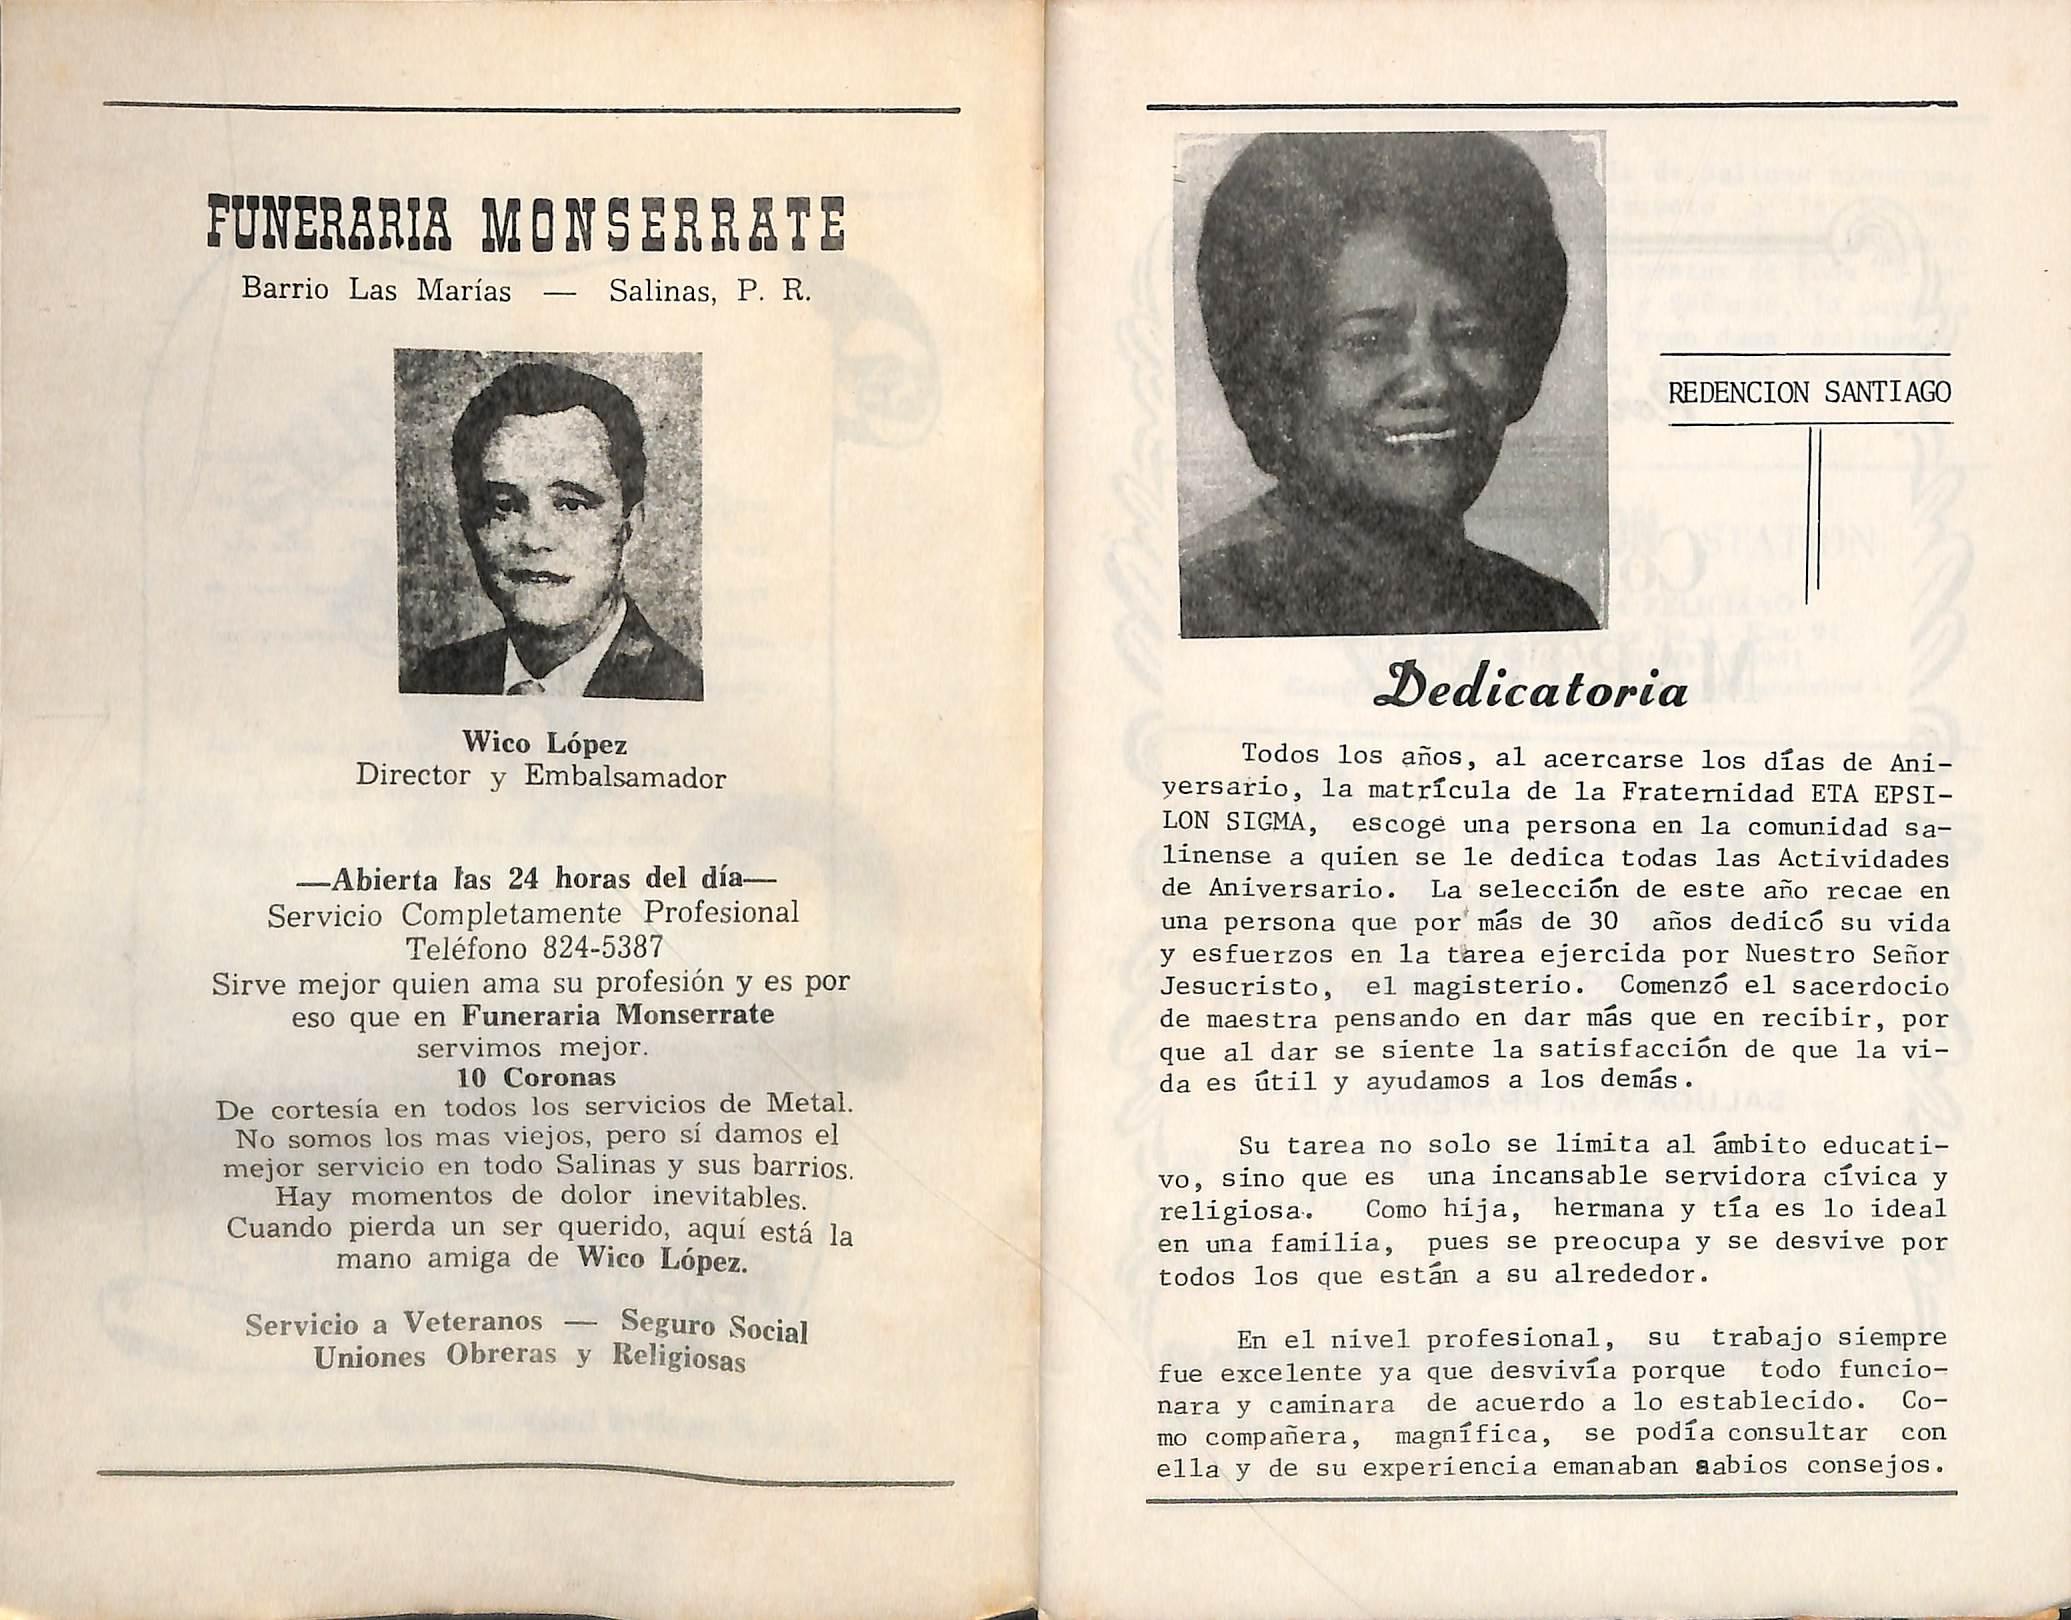 FUNERARIA MONSERRATE
Barrio Las Marías — Salinas, P. R.
Wico López
Director y Embalsamador
—Abierta las 24 horas del día—
Servicio Completamente Profesional
Teléfono 824-5387
Sirve mejor quien ama su profesión y es por
eso que en Funeraria Monserrate
servimos mejor.
10 Coronas
De cortesía en todos los servicios de Metal.
No somos los mas viejos, pero sí damos el
mejor servicio en todo Salinas y sus barrios.
Hay momentos de dolor inevitables.
Cuando pierda un ser querido, aquí está la
mano amiga de Wico López.
Servicio a Veteranos — Seguro Social
Uniones Obreras y Religiosas
REDENCION SANTIAGO
Dedicatoria
Todos los años, al acercarse los días de Ani-
versario, la matrícula de la Fraternidad ETA EPSI-
LON SIGMA, escoge una persona en la comunidad sa-
linense a quien se le dedica todas las Actividades
de Aniversario. La selección de este año recae en
una persona que por más de 30 años dedicó su vida
y esfuerzos en la tarea ejercida por Nuestro Señor
Jesucristo, el magisterio. Comenzó el sacerdocio
de maestra pensando en dar más que en recibir, por
que al dar se siente la satisfacción de que la vi-
da es útil y ayudamos a los demás.
Su tarea no solo se limita al ámbito educati-
vo, sino que es una incansable servidora cívica y
religiosa. Como hija, hermana y tía es lo ideal
en una familia, pues se preocupa y se desvive por
todos los que están a su alrededor.
En el nivel profesional, su trabajo siempre
fue excelente ya que desvivía porque todo funcio-
nara y caminara de acuerdo a lo establecido. Co-
mo compañera, magnífica, se podía consultar con
ella y de su experiencia emanaban sabios consejos.